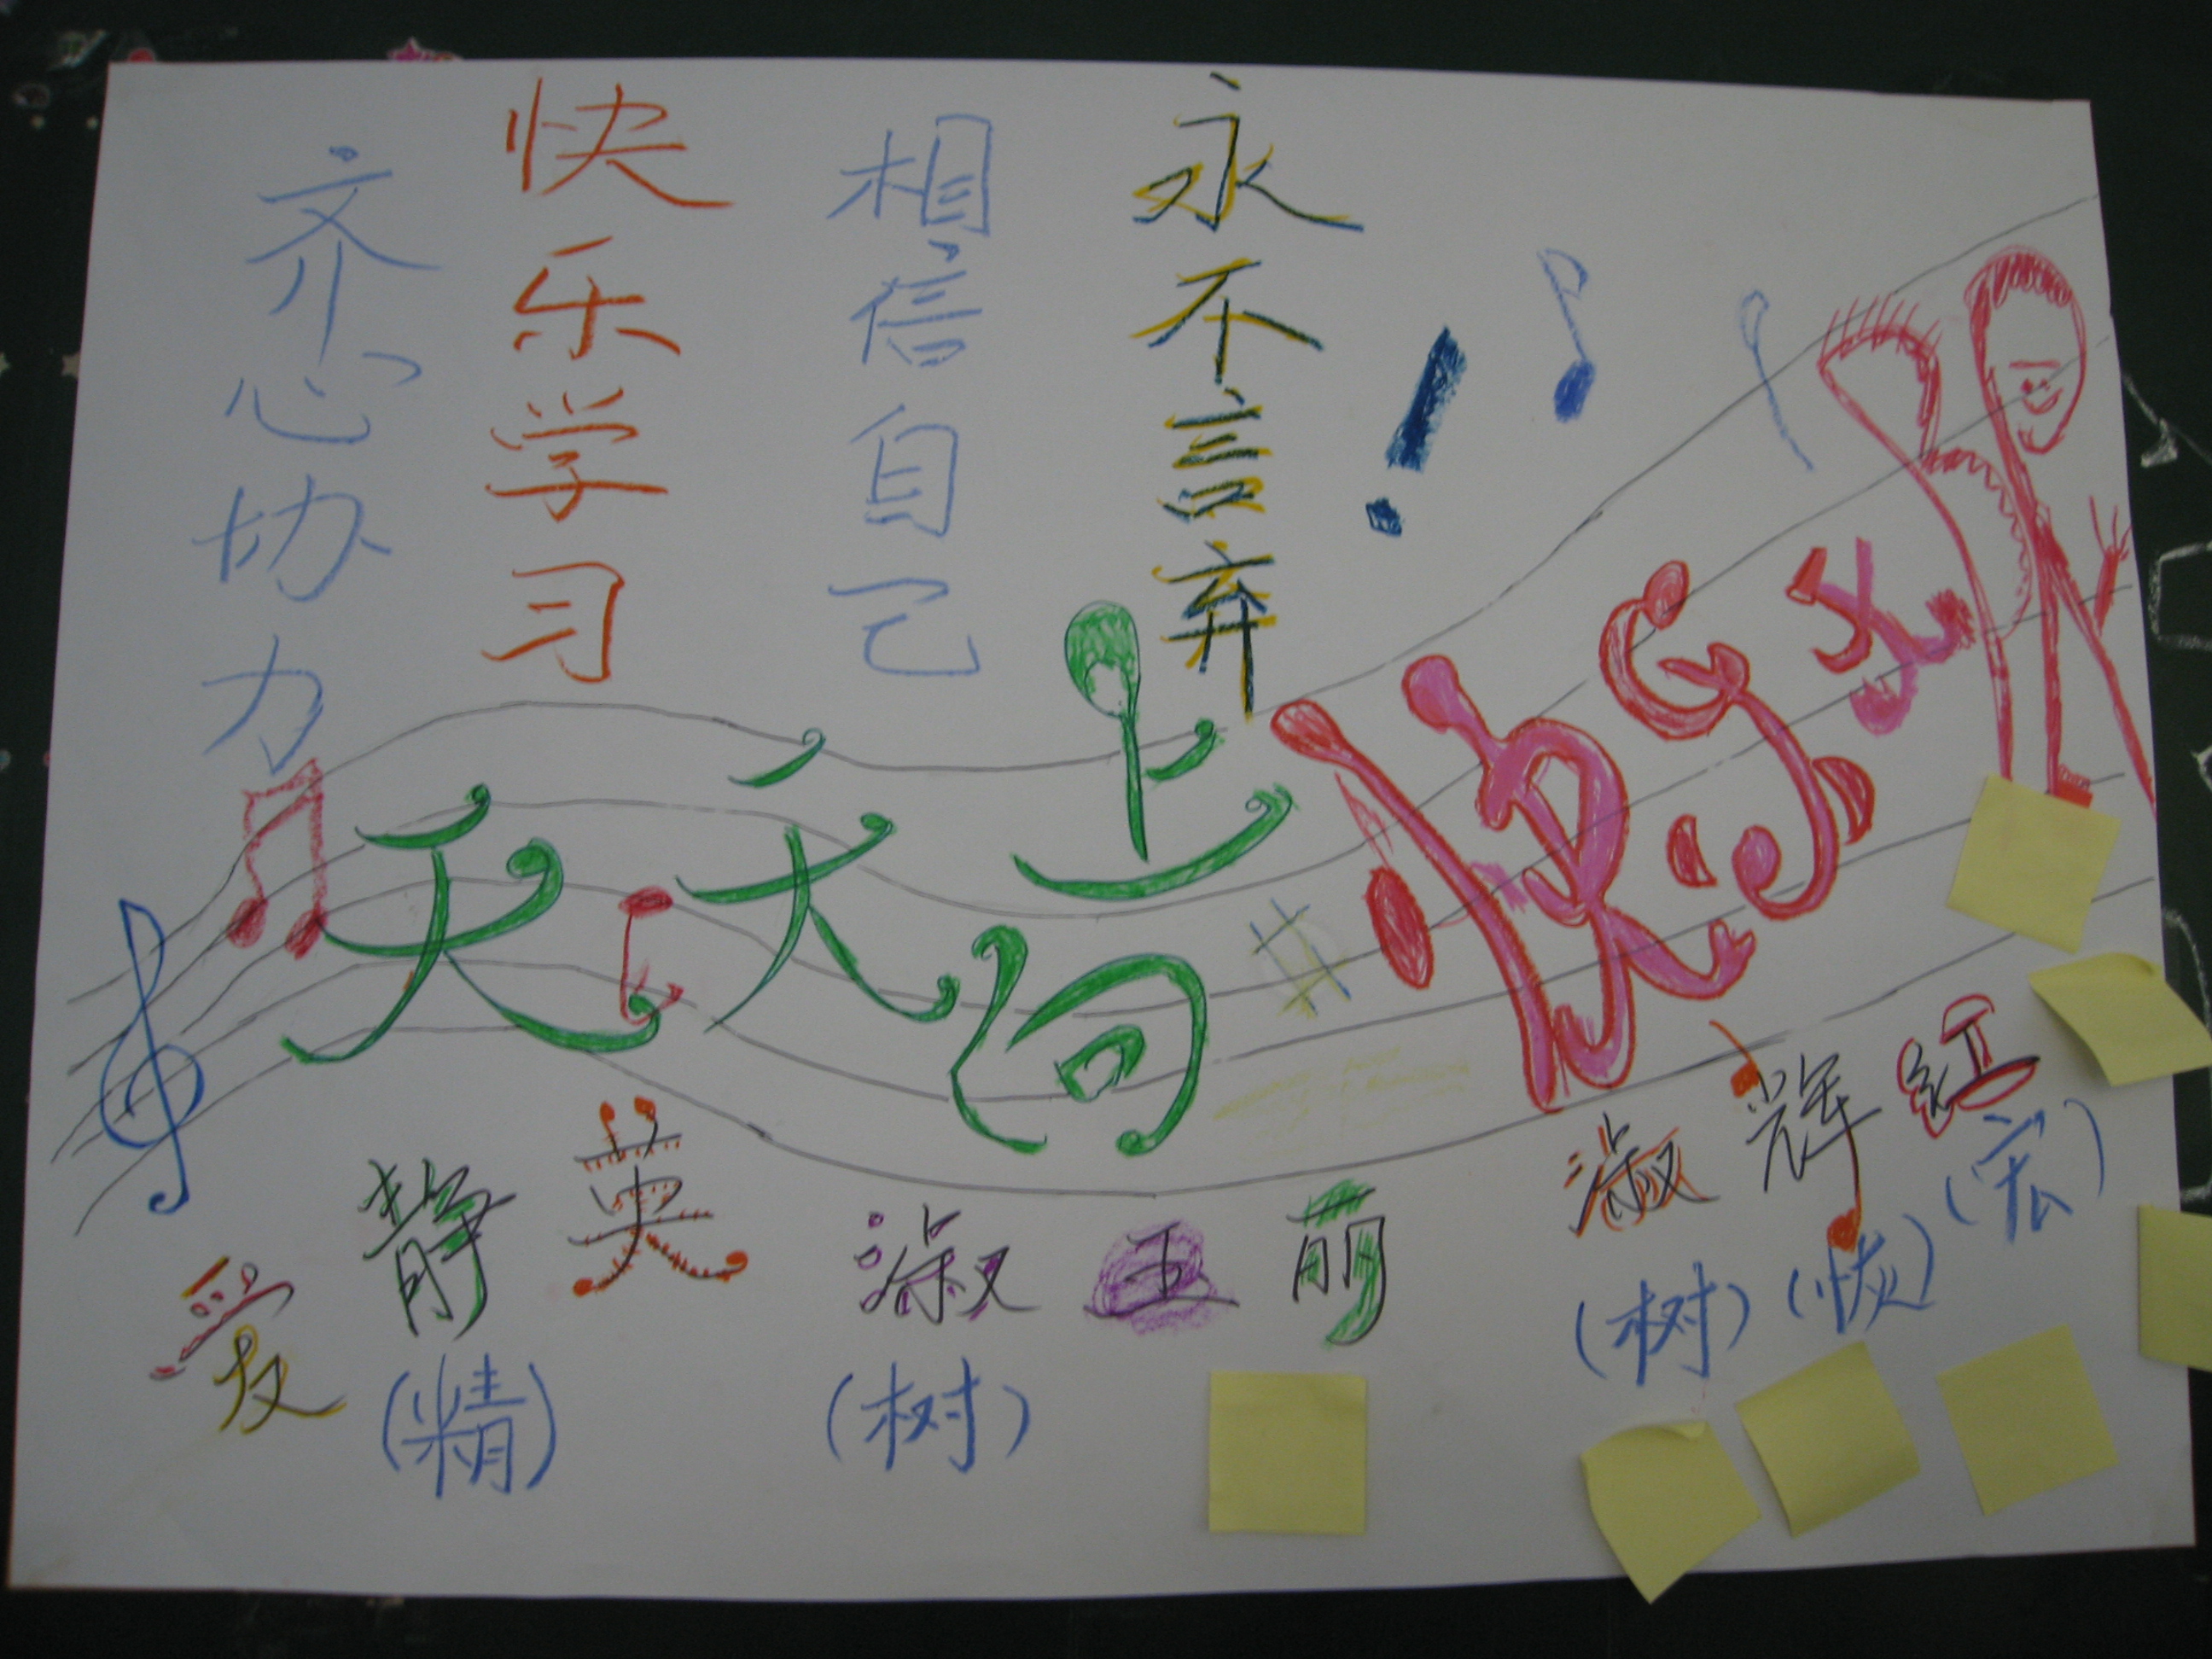 齐心协力
快乐学习
相信自己
永不言弃!
天天向上
爱 静 英 淑 玉 萌 淑 辉 红
(精) (树) (树) (恢) (宏)